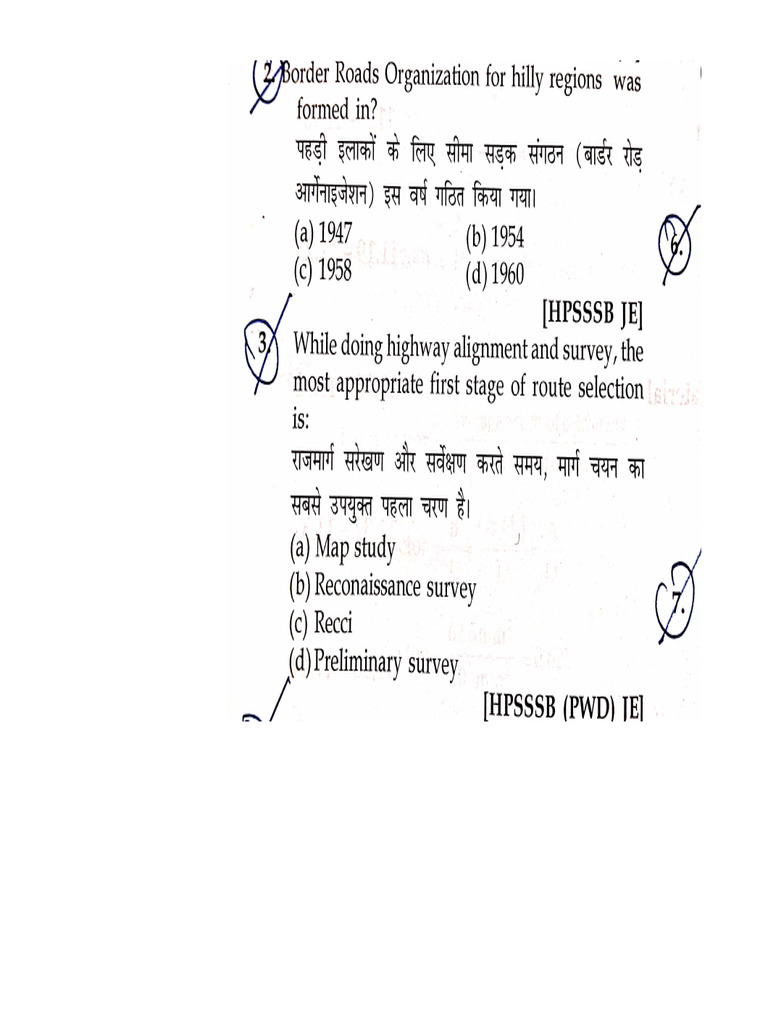 2. Border Roads Organization for hilly regions was
formed in?
पहड़ी इलाकों के लिए सीमा सड़क संगठन (बार्डर रोड़
आर्गेनाइजेशन) इस वर्ष गठित किया गया।
(a) 1947 (b) 1954
(c) 1958 (d) 1960
[HPSSSB JE]
3. While doing highway alignment and survey, the
most appropriate first stage of route selection
is:
राजमार्ग सरेखण और सर्वेक्षण करते समय, मार्ग चयन का
सबसे उपयुक्त पहला चरण है।
(a) Map study
(b) Reconaissance survey
(c) Recci
(d) Preliminary survey
[HPSSSB (PWD) JE]
6.
7.